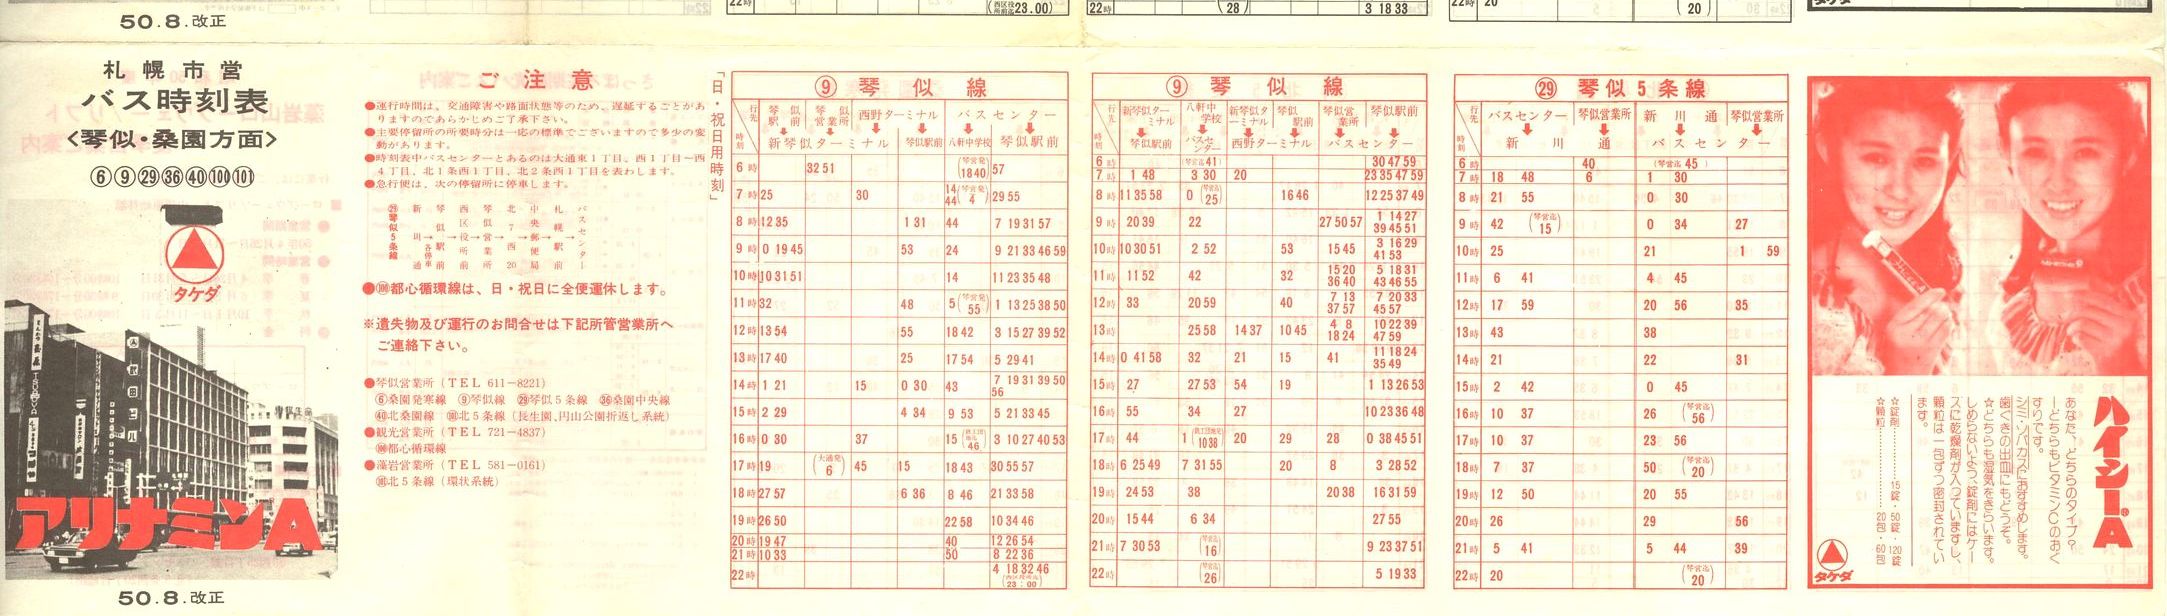 50.8.改正
札幌市営
バス時刻表
<琴似・桑園方面>
⑥⑨㉙㊱㊵(100)(101)
タケダ
アリナミンA
50.8.改正
ご注意
●運行時間は、交通障害や路面状態等のため、遅延することがあ
りますのであらかじめご了承下さい。
●主要停留所の所要時分は一応の標準でございますので多少の変
動があります。
●時刻表中バスセンターとあるのは大通東1丁目、西1丁目～西
4丁目、北1条西1丁目、北2条西1丁目を表わします。
●急行便は、次の停留所に停車します。
㉙琴似5条線
●(100)都心循環線は、日・祝日に全便運休します。
※遺失物及び運行のお問合せは下記所管営業所へ
ご連絡下さい。
●琴似営業所(TEL 611-8221)
⑥桑園発寒線 ⑨琴似線 ㉙琴似5条線 ㊱桑園中央線
㊵北桑園線 (101)北5条線(長生園、円山公園折返し系統)
●観光営業所(TEL 721-4837)
(100)都心循環線
●藻岩営業所(TEL 581-0161)
(101)北5条線(環状系統)
「日・祝日用時刻」
22時 (西区役所前迄23.00)
⑨ 琴似線
行先 時刻
琴似駅前 琴似営業所 西野ターミナル バスセンター
新琴似ターミナル 琴似駅前 八軒中学校 琴似駅前
6時 32 51 (琴営発18 40) 57
7時 25 30 14 44 (琴営発4) 29 55
8時 12 35 1 31 44 7 19 31 57
9時 0 19 45 53 24 9 21 33 46 59
10時 10 31 51 14 11 23 35 48
11時 32 48 5 (琴営発55) 1 13 25 38 50
12時 13 54 55 18 42 3 15 27 39 52
13時 17 40 25 17 54 5 29 41
14時 1 21 15 0 30 43 7 19 31 39 50 56
15時 2 29 4 34 9 53 5 21 33 45
16時 0 30 37 15 (46) 3 10 27 40 53
17時 19 (大通発6) 45 15 18 43 30 55 57
18時 27 57 6 36 8 46 21 33 58
19時 26 50 22 58 10 34 46
20時 19 47 40 12 26 54
21時 10 33 50 8 22 36
22時 4 18 32 46 (西区役所前迄23:00)
22時 (28) 3 18 33
⑨ 琴似線
行先 時刻
新琴似ターミナル 八軒中学校 新琴似ターミナル 琴似駅前 琴似営業所 琴似駅前
琴似駅前 バスセンター 西野ターミナル バスセンター
6時 (琴営迄41) 30 47 59
7時 1 48 3 30 20 23 35 47 59
8時 11 35 58 0 (琴営迄25) 16 46 12 25 37 49
9時 20 39 22 27 50 57 1 14 27 39 45 51
10時 10 30 51 2 52 53 15 45 3 16 29 41 53
11時 11 52 42 32 15 20 36 40 5 18 31 43 46 55
12時 33 20 59 40 7 13 37 57 7 20 33 45 57
13時 25 58 14 37 10 45 4 8 18 24 10 22 39 47 59
14時 0 41 58 32 21 15 41 11 18 24 35 49
15時 27 27 53 54 19 1 13 26 53
16時 55 34 27 10 23 36 48
17時 44 1 (10 38) 20 29 28 0 38 45 51
18時 6 25 49 7 31 55 20 8 3 28 52
19時 24 53 38 20 38 16 31 59
20時 15 44 6 34 27 55
21時 7 30 53 (琴営迄16) 9 23 37 51
22時 (琴営迄26) 5 19 33
22時 20 (20)
㉙ 琴似5条線
行先 時刻
バスセンター 琴似営業所 新川通 琴似営業所
新川通 バスセンター
6時 40 (琴営迄45)
7時 18 48 6 1 30
8時 21 55 0 30
9時 42 (琴営迄15) 0 34 27
10時 25 21 1 59
11時 6 41 4 45
12時 17 59 20 56 35
13時 43 38
14時 21 22 31
15時 2 42 0 45
16時 10 37 26 (琴営迄56)
17時 10 37 23 56
18時 7 37 50 (琴営迄20)
19時 12 50 20 55
20時 26 29 56
21時 5 41 5 44 39
22時 20 (琴営迄20)
タケダ
ハイシーA
あなた、どちらのタイプ?
―どちらもビタミンCのおく
すりです。
シミ・ソバカスにおすすめします。
歯ぐきの出血にもどうぞ。
☆どちらも湿気をきらいます。
しめらないよう、錠剤にはケー
スに乾燥剤が入っていますし、
顆粒は一包ずつ密封されてい
ます。
☆錠剤……15錠・50錠・120錠
☆顆粒……20包・60包
タケダ